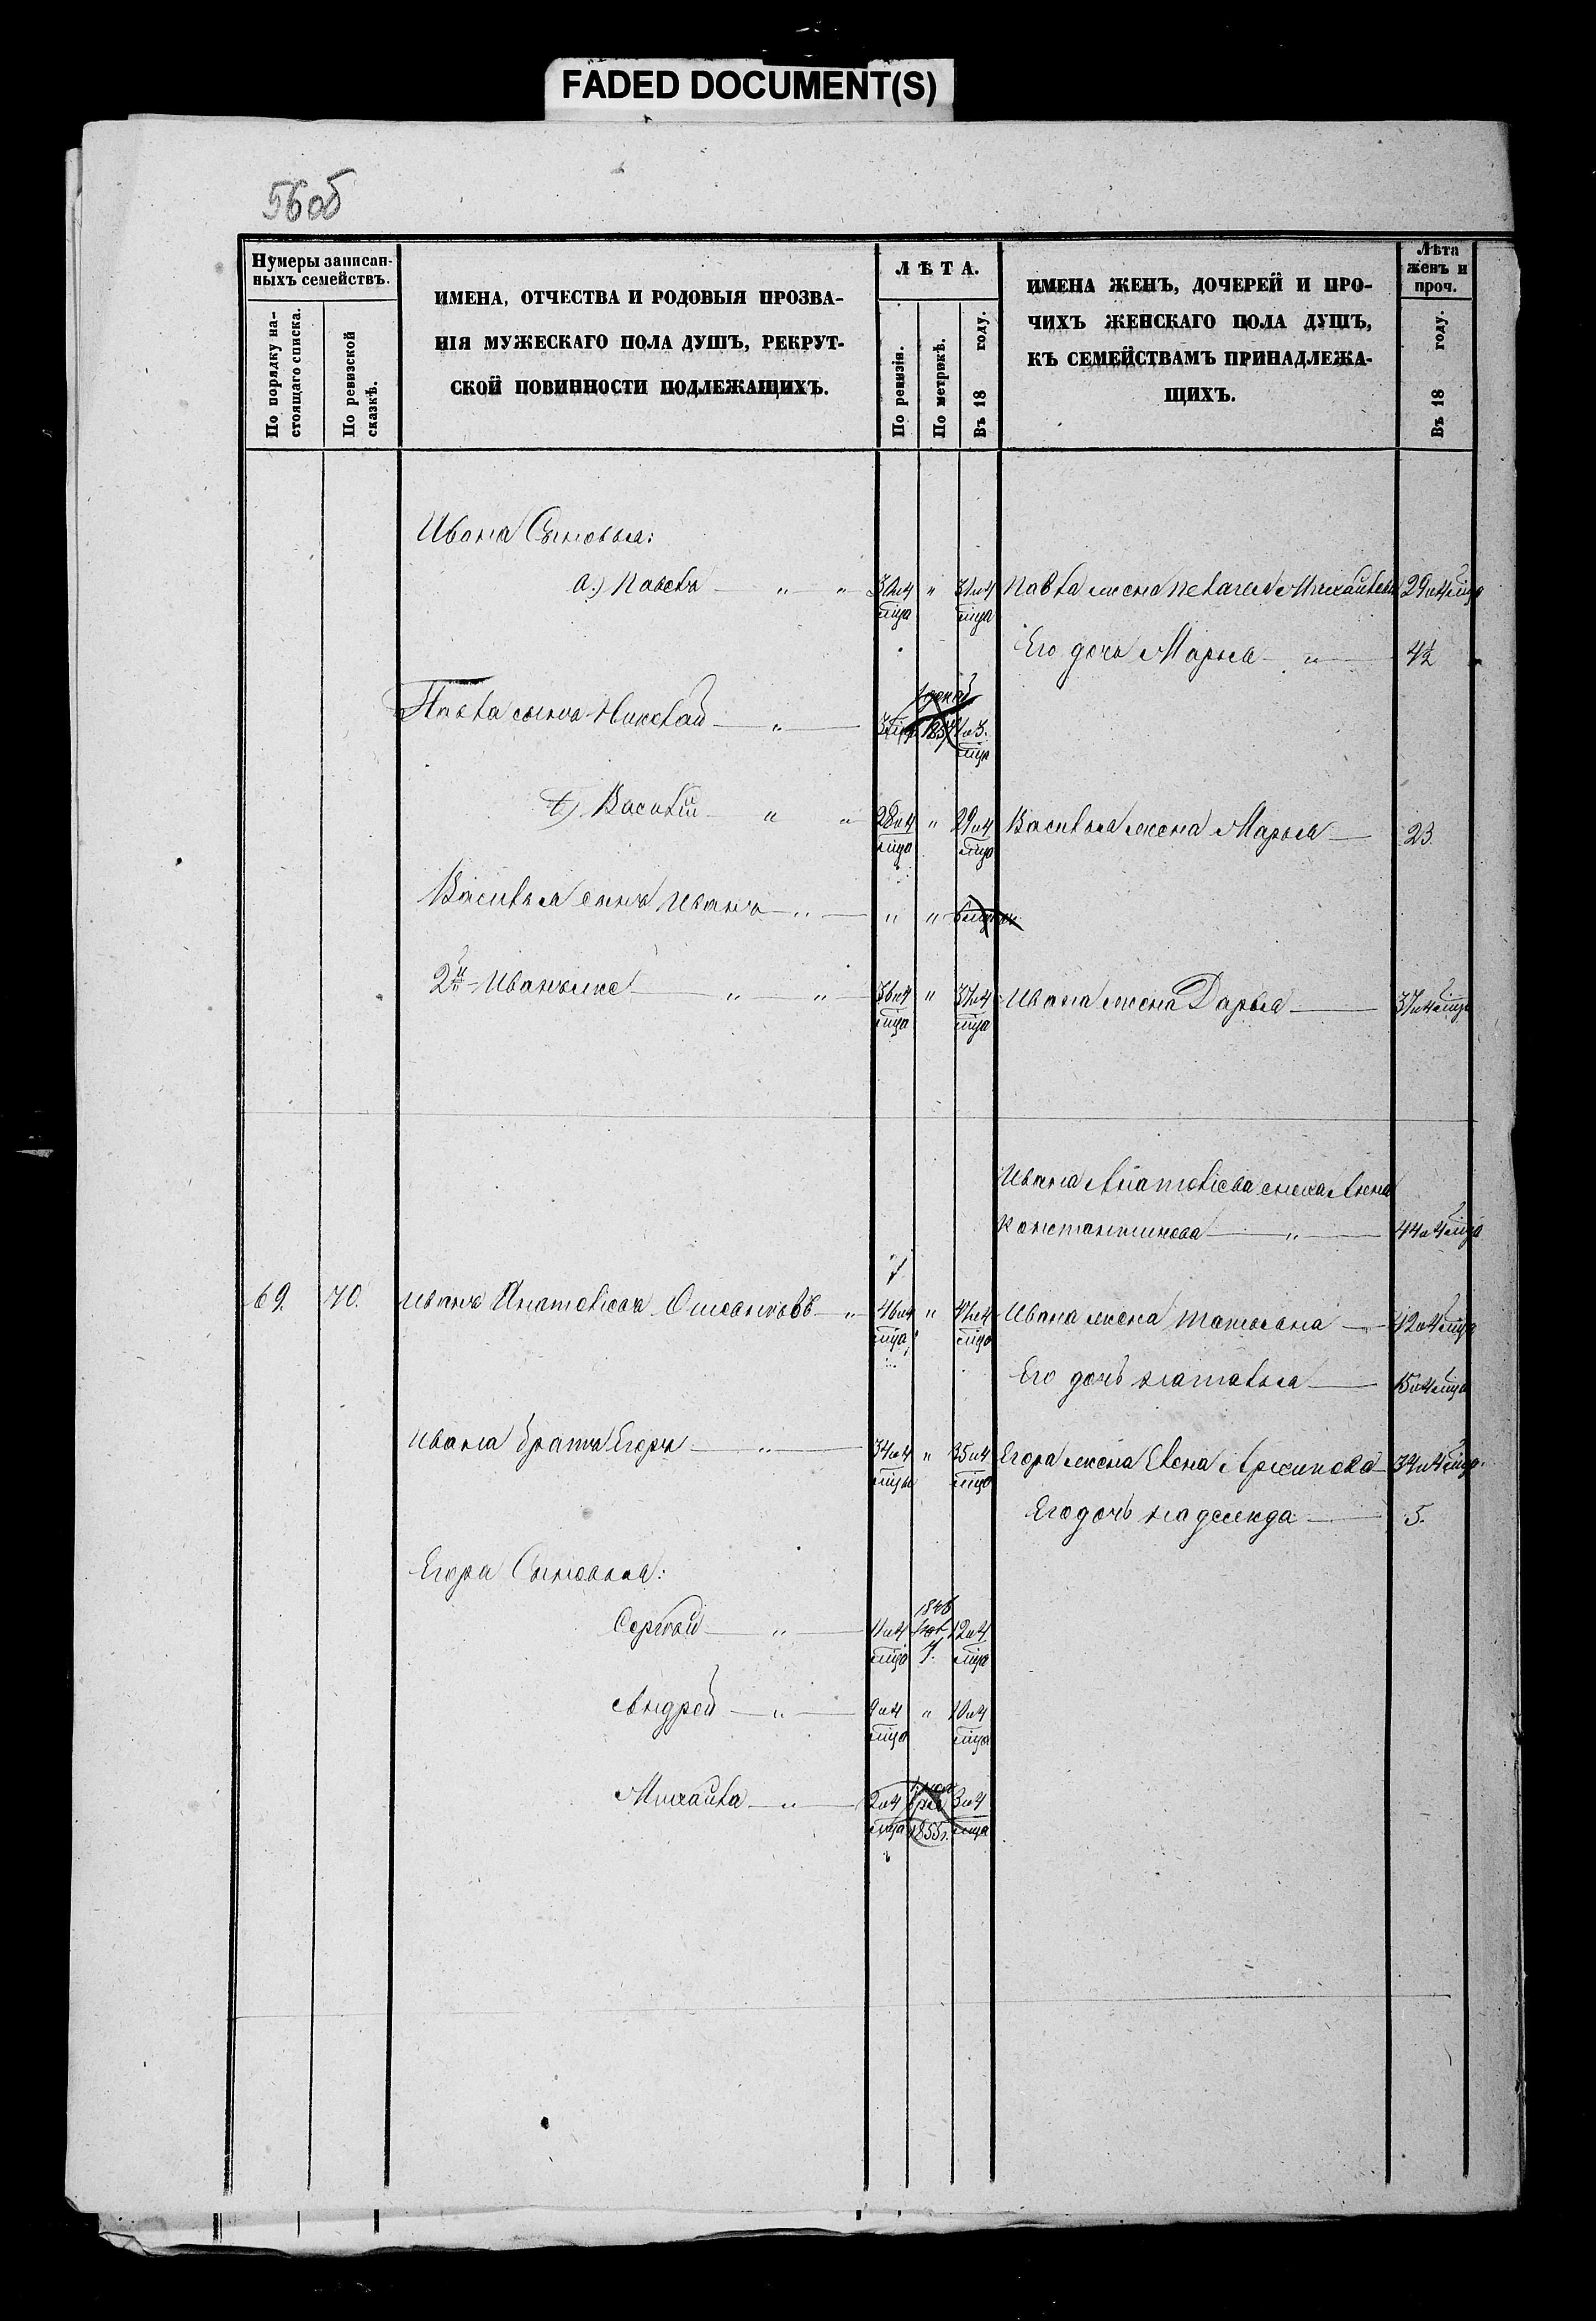 FADED DOCUMENT(S)
56об
Нумеры записан-
ныхъ семействъ.
По порядку на-
стоящаго списка.
По ревизской
сказкѣ.
ИМЕНА, ОТЧЕСТВА И РОДОВЫЯ ПРОЗВА-
НІЯ МУЖЕСКАГО ПОЛА ДУШЪ, РЕКРУТ-
СКОЙ ПОВИННОСТИ ПОДЛЕЖАЩИХЪ.
ЛѢТА.
По ревизіи.
По метрикѣ.
Въ 18 году.
ИМЕНА ЖЕНЪ, ДОЧЕРЕЙ И ПРО-
ЧИХЪ ЖЕНСКАГО ПОЛА ДУШЪ,
КЪ СЕМЕЙСТВАМЪ ПРИНАДЛЕЖА-
ЩИХЪ.
Лѣта
женъ и
проч.
Въ 18 году.
Ивана Сыновья:
а.) Павелъ " " " Павла жена Пелагея Михайлова 29 и 4 мца
мца мца
Его дочь Марья " 4½
Павла сынъ Николай "
Василій " " 28 и 4 " 29 и 4 Василья жена Марья 23.
мца мца
Василья сынъ Иванъ " " "
2й Иванъ же " " 36 и 4 " 37 и 4 Ивана жена Дарья 37 и 4 мца
мца мца
Ивана Анна
Константинова " 44 и 4 мца
69. 70. Иванъ " 46 и 4 " 47 и 4 Ивана жена Татьяна 42 и 4 мца
мца мца
Его дочь Наталья 15 и 4 мца
Ивана братъ Егоръ " 34 и 4 " 35 и 4 Егора жена Елена Архипова 34 и 4 мца
мца мца
Его дочь Надежда 5.
Егора Сыновья:
Сергѣй " 11 и 4 1846 12 и 4
мца мца
Андрей " 9 и 4 " 10 и 4
мца мца
Михайла " 2 и 4 3 и 4
мца 1855г. мца